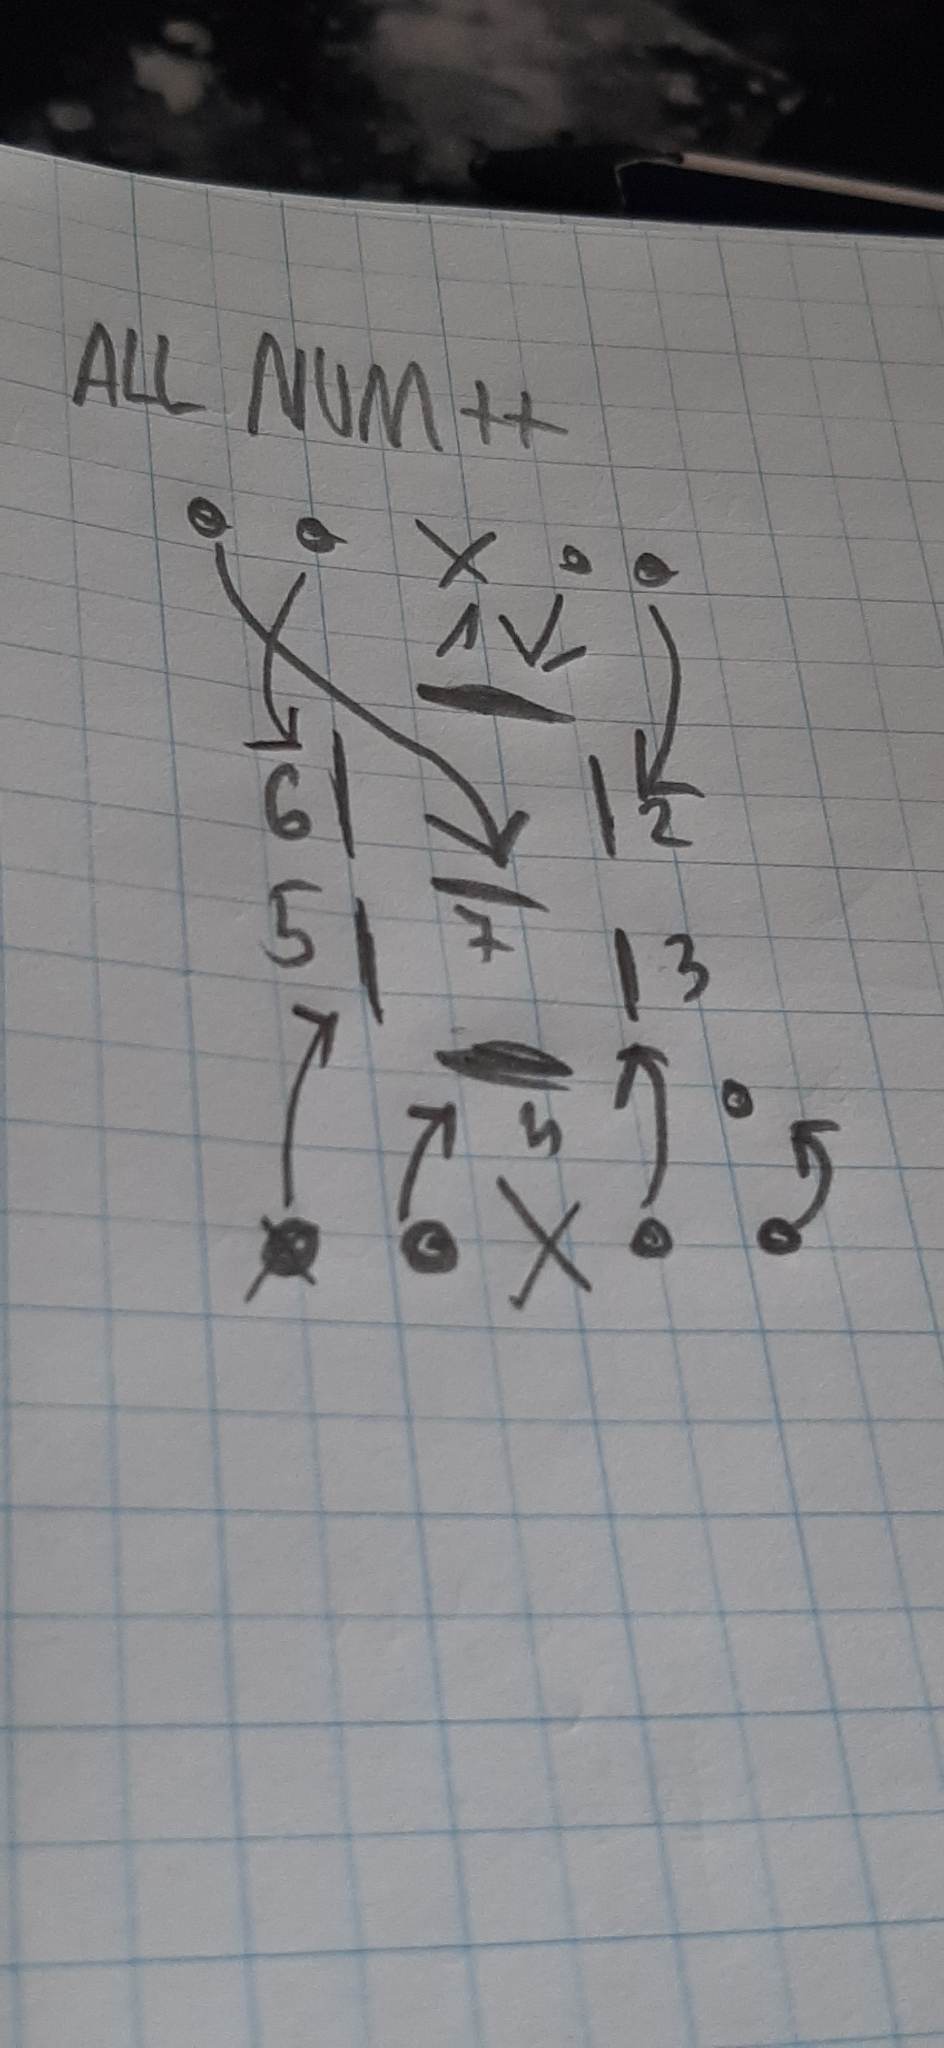 ALL NUM++
X
1
6 2
5 7 3
4
X